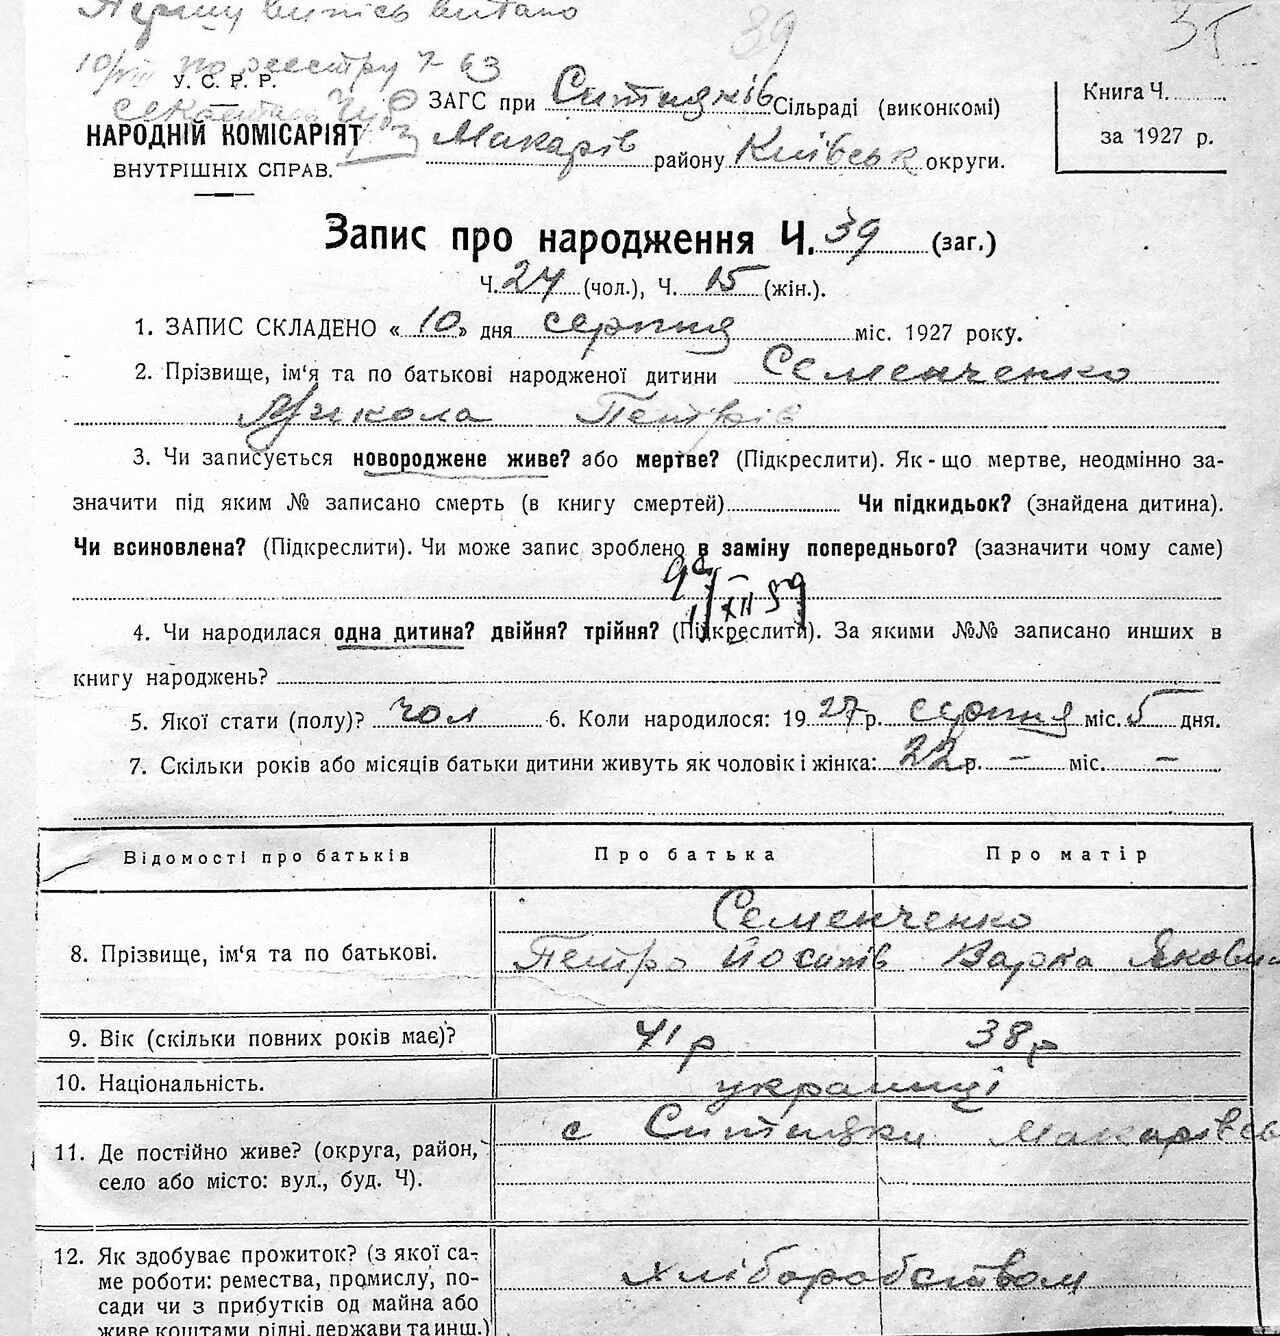 Першу випись видано
39
35
10/VIII по реєстру Ч 63
У. С. Р. Р.
НАРОДНІЙ КОМІСАРІЯТ
ВНУТРІШНІХ СПРАВ.
ЗАГС при Ситняків Сільраді (виконкомі)
Макарів району Київськ округи.
Книга Ч.
за 1927 р.
Запис про народження Ч. 39 (заг.)
Ч. 24 (чол.), Ч. 15 (жін.).
1. ЗАПИС СКЛАДЕНО «10» дня серпня міс. 1927 року.
2. Прізвище, ім‘я та по батькові народженої дитини Семенченко
Микола Петрів
3. Чи записується новороджене живе? або мертве? (Підкреслити). Як-що мертве, неодмінно за-
значити під яким № записано смерть (в книгу смертей) Чи підкидьок? (знайдена дитина).
Чи всиновлена? (Підкреслити). Чи може запис зроблено в заміну попереднього? (зазначити чому саме)
XII 59
4. Чи народилася одна дитина? двійня? трійня? (Підкреслити). За якими №№ записано инших в
книгу народжень?
5. Якої стати (полу)? чол 6. Коли народилося: 1927 р. серпня міс. 5 дня.
7. Скільки років або місяців батьки дитини живуть як чоловік і жінка: 22 р. — міс. —
Відомості про батьків Про батька Про матір
Семенченко
8. Прізвище, ім‘я та по батькові. Петро Йосипів Варка Яковл
9. Вік (скільки повних років має)? 41 р 38 р
10. Національність. українці
с Ситняки Макарівсь
11. Де постійно живе? (округа, район,
село або місто: вул., буд. Ч).
12. Як здобуває прожиток? (з якої са-
ме роботи: ремества, промислу, по- хліборобством
сади чи з прибутків од майна або
живе коштами рідні, держави та инш.)